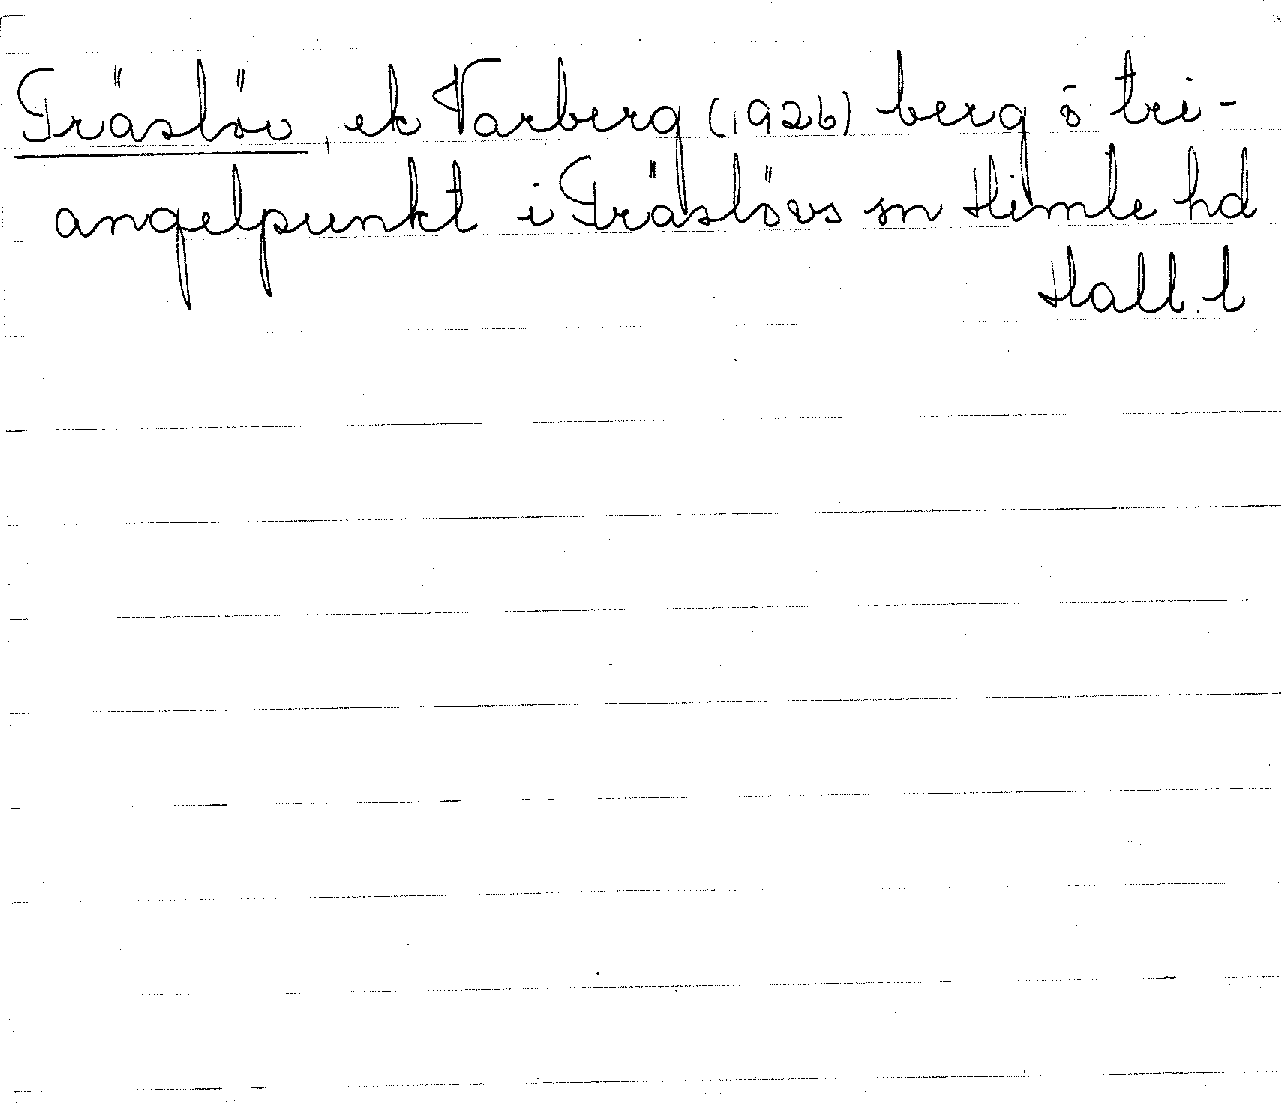 Träslöv, ek Varberg (1926) berg ö tri-
angelpunkt i Träslövs sn Himle hd
Hall. l